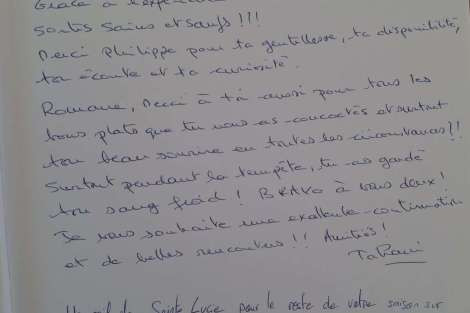 Grâce à l'expérience
sortis sains et saufs !!!
Merci Philippe pour ta gentillesse, ta disponibilité,
ton écoute et ta curiosité.
Romane, Merci à toi aussi pour tous les
bons plats que tu nous as concoctés et surtout
ton beau sourire en toutes les circonstances !!
Surtout pendant la tempête, tu as gardé
ton sang froid ! BRAVO à vous deux !
Je vous souhaite une excellente continuation
et de belles rencontres !! Amitiés !
Sainte Lucie pour le reste de votre saison sur